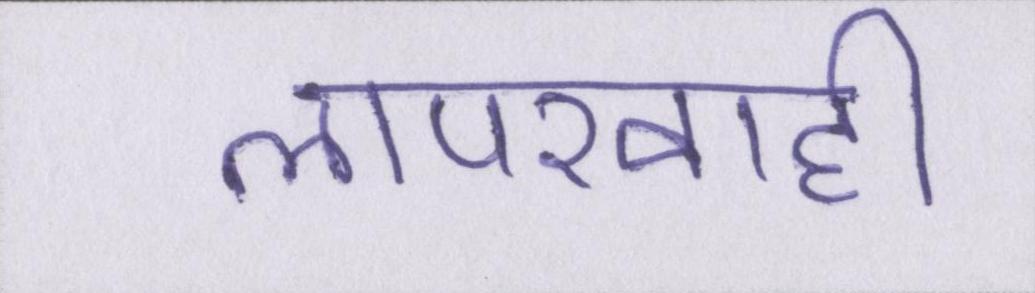 लापरवाही